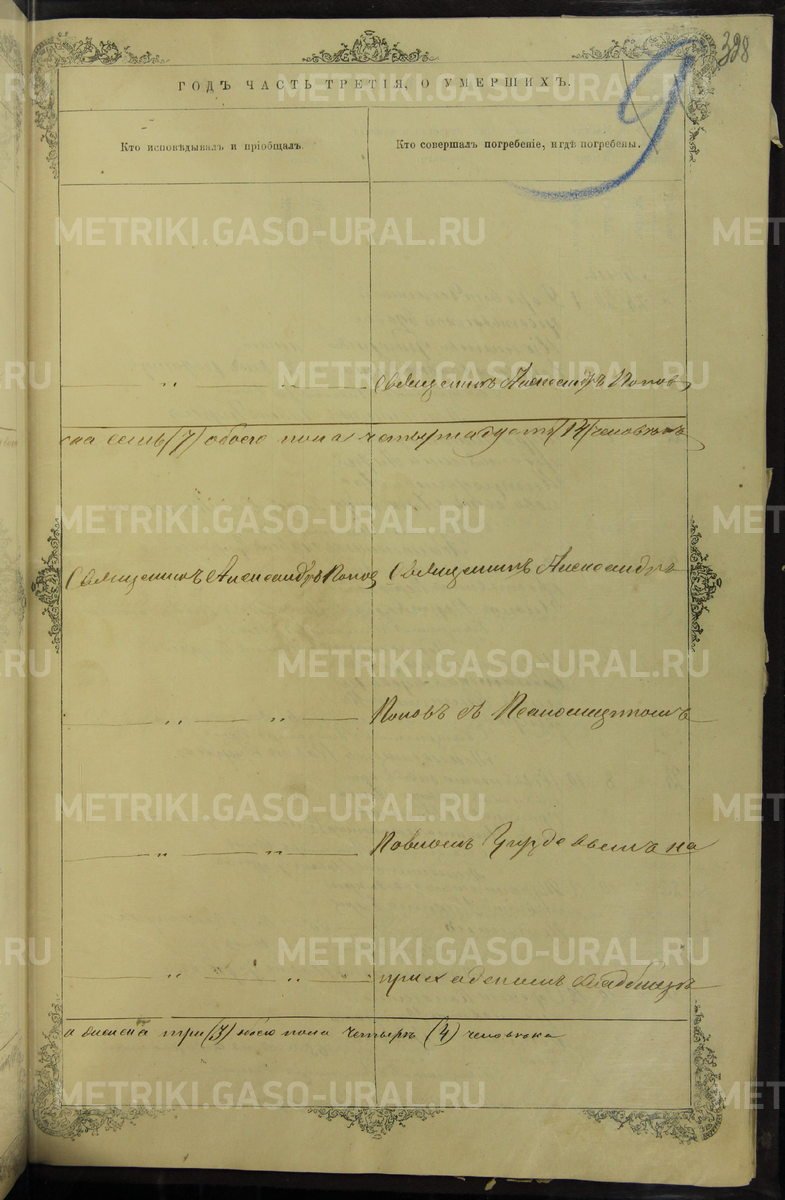 338
ГОДЪ ЧАСТЬ ТРЕТІЯ, О УМЕРШИХЪ.
Кто исповѣдывалъ и пріобщалъ.
Кто совершалъ погребеніе, и гдѣ погребены.
METRIKI.GASO-URAL.RU
Священникъ Александръ Поповъ
семь (7) обоего пола четырнадцать (14) человѣкъ
Священникъ Александръ Поповъ
Священникъ Александръ
Поповъ съ Псаломщикомъ
на
приходскомъ кладбищѣ
три (3) обоего пола четыре (4) человѣка